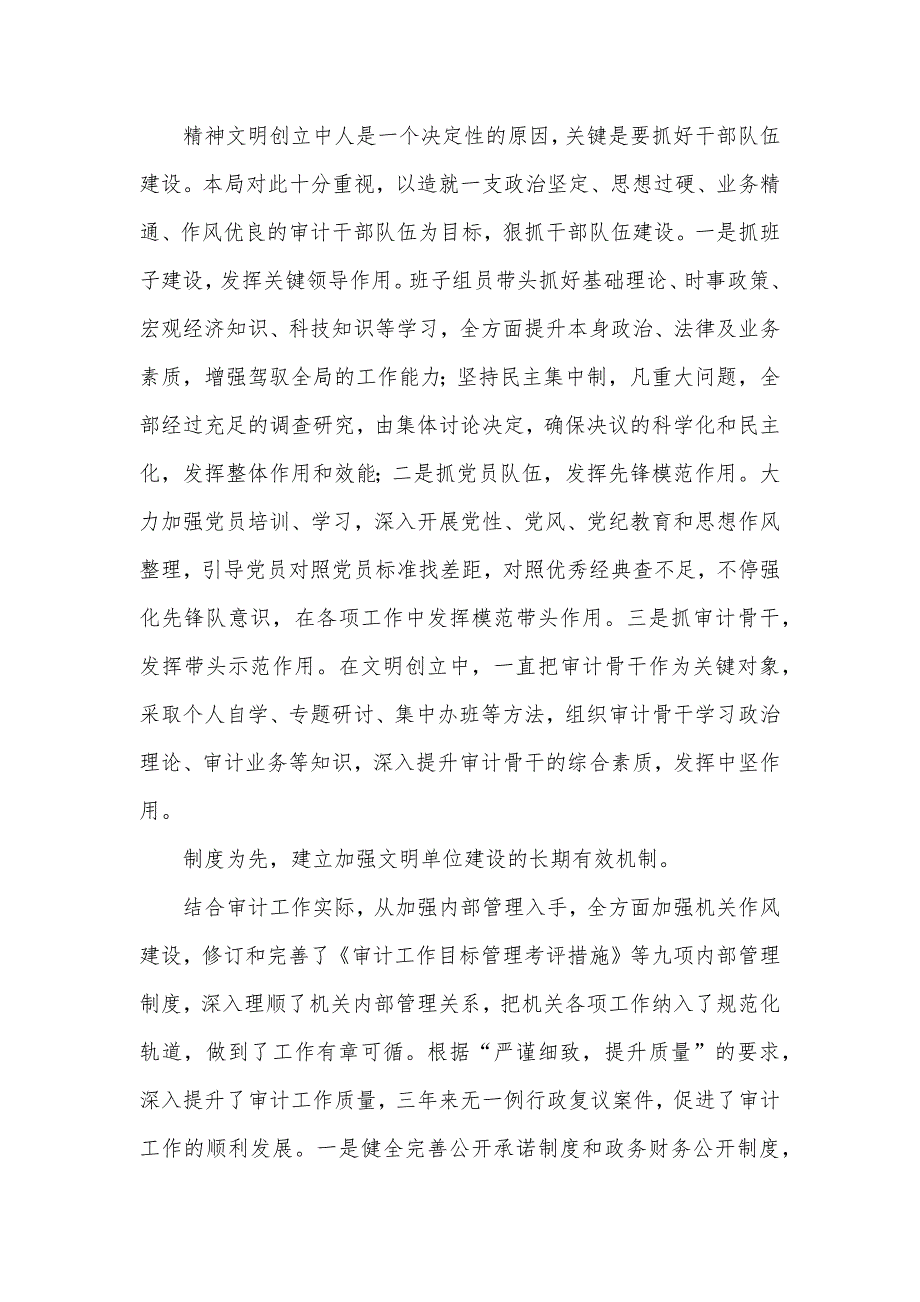 精神文明创立中人是一个决定性的原因，关键是要抓好干部队伍
建设。本局对此十分重视，以造就一支政治坚定、思想过硬、业务精
通、作风优良的审计干部队伍为目标，狠抓干部队伍建设。一是抓班
子建设，发挥关键领导作用。班子组员带头抓好基础理论、时事政策、
宏观经济知识、科技知识等学习，全方面提升本身政治、法律及业务
素质，增强驾驭全局的工作能力；坚持民主集中制，凡重大问题，全
部经过充足的调查研究，由集体讨论决定，确保决议的科学化和民主
化，发挥整体作用和效能；二是抓党员队伍，发挥先锋模范作用。大
力加强党员培训、学习，深入开展党性、党风、党纪教育和思想作风
整理，引导党员对照党员标准找差距，对照优秀经典查不足，不停强
化先锋队意识，在各项工作中发挥模范带头作用。三是抓审计骨干，
发挥带头示范作用。在文明创立中，一直把审计骨干作为关键对象，
采取个人自学、专题研讨、集中办班等方法，组织审计骨干学习政治
理论、审计业务等知识，深入提升审计骨干的综合素质，发挥中坚作
用。
制度为先，建立加强文明单位建设的长期有效机制。
结合审计工作实际，从加强内部管理入手，全方面加强机关作风
建设，修订和完善了《审计工作目标管理考评措施》等九项内部管理
制度，深入理顺了机关内部管理关系，把机关各项工作纳入了规范化
轨道，做到了工作有章可循。根据“严谨细致，提升质量”的要求，
深入提升了审计工作质量，三年来无一例行政复议案件，促进了审计
工作的顺利发展。一是健全完善公开承诺制度和政务财务公开制度，